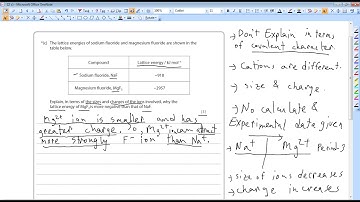 *(c) The lattice energies of sodium fluoride and magnesium fluoride are shown in the table below.
Compound Lattice energy / kJ mol⁻¹
Sodium fluoride, NaF -918
Magnesium fluoride, MgF₂ -2957
Explain, in terms of the sizes and charges of the ions involved, why the lattice energy of MgF₂ is more negative than that of NaF.
Mg²⁺ ion is smaller and has
greater charge, So, Mg²⁺ ion can attract
more strongly F⁻ ion than Na⁺.
→ Don't Explain in terms
of covalent character.
→ Cations are different.
→ size & charge.
→ No calculate &
Experimental date given
→ Na⁺ Mg²⁺ Period 3
→ size of ions decreases
→ change increases